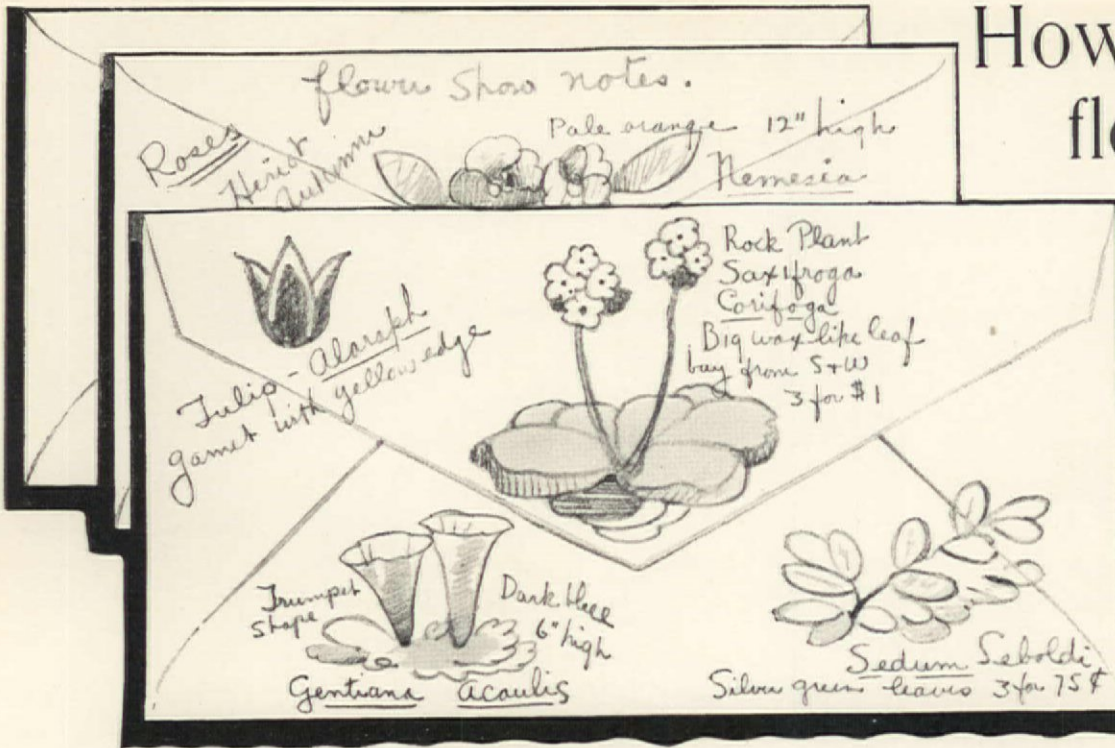 How
flo
flower show notes.
Roses
Heriot
Autumn
Pale orange 12" high
Nemesia
Tulip - Alaraph
garnet with yellow edge
Rock Plant
Saxifroga
Corifoga
Big wax-like leaf
buy from S+W
3 for $1
Trumpet
Shape
Dark blue
6" high
Gentiana acaulis
Sedum Seboldi
Silver green leaves 3 for 75¢